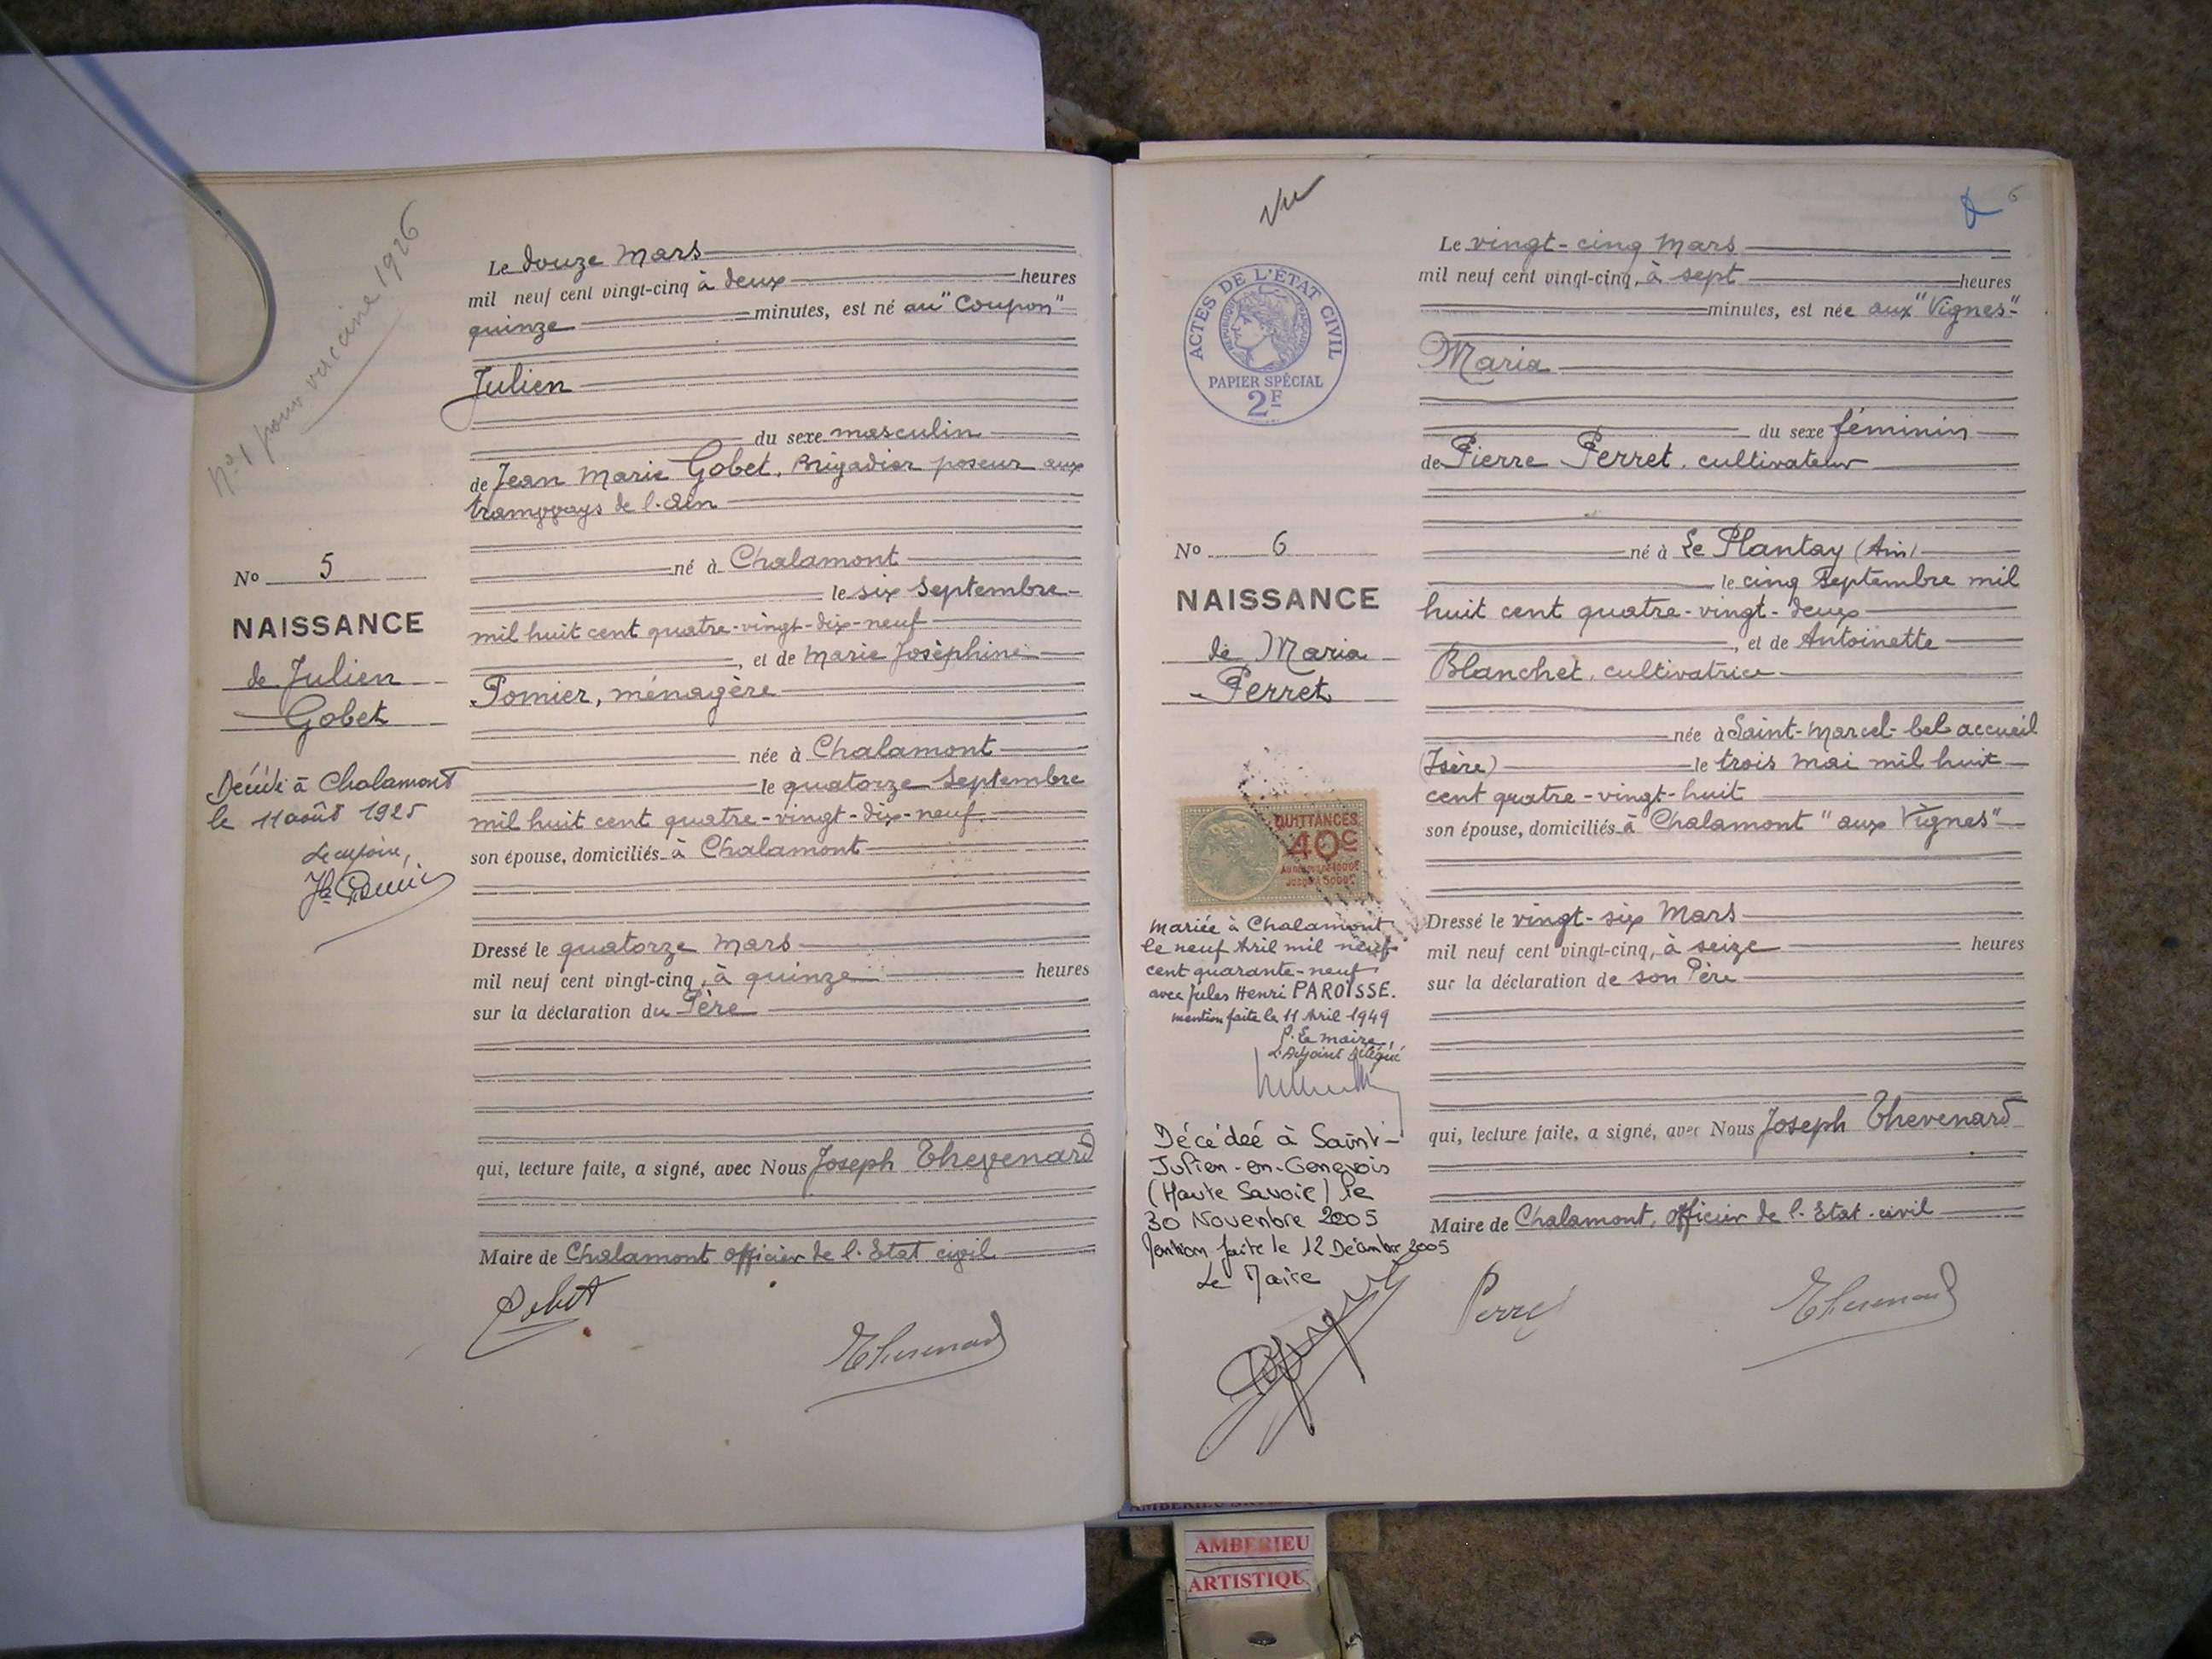 No 1 pour vaccine 1926
Le douze Mars
mil neuf cent vingt-cinq à deux heures
quinze minutes, est né au "Coupon"
Julien
du sexe masculin
de Jean Marie Gobet, Brigadier poseur aux
tramways de l'Ain
né à Chalamont
le six Septembre
mil huit cent quatre-vingt-dix-neuf
, et de Marie Josèphine
Pomier, ménagère
née à Chalamont
le quatorze Septembre
mil huit cent quatre-vingt-dix-neuf
son épouse, domiciliés à Chalamont
Dressé le quatorze Mars
mil neuf cent vingt-cinq, à quinze heures
sur la déclaration du Père
qui, lecture faite, a signé, avec Nous Joseph Thevenard
Maire de Chalamont officier de l'Etat civil
Gobet
Thevenard
No 5
NAISSANCE
de Julien
Gobet
Décédé à Chalamont
le 11 août 1925
Le Maire,
Vu
6
ACTES DE L'ETAT CIVIL
PAPIER SPÉCIAL
2F
Le vingt-cinq Mars
mil neuf cent vingt-cinq, à sept heures
minutes, est née aux "Vignes"
Maria
du sexe féminin
de Pierre Perret, cultivateur
né à Le Plantay (Ain)
le cinq Septembre mil
huit cent quatre-vingt-deux
, et de Antoinette
Blanchet, cultivatrice
née à Saint-Marcel-bel accueil
(Isère) le trois Mai mil huit
cent quatre-vingt-huit
son épouse, domiciliés à Chalamont "aux Vignes"
Dressé le vingt-six Mars
mil neuf cent vingt-cinq, à seize heures
sur la déclaration de son Père
qui, lecture faite, a signé, avec Nous Joseph Thevenard
Maire de Chalamont, officier de l'Etat-civil
Perret
Thevenard
No 6
NAISSANCE
de Maria
Perret
QUITTANCES
40c
Mariée à Chalamont
le neuf Avril mil neuf
cent quarante-neuf
avec Jules Henri PAROISSE.
mention faite le 11 Avril 1949
P. Le Maire,
L'Adjoint délégué
Décédée à Saint-
Julien-en-Genevois
(Haute Savoie) le
30 Novembre 2005
Mention faite le 12 Décembre 2005
Le Maire
AMBERIEU
AMBERIEU
ARTISTIQU